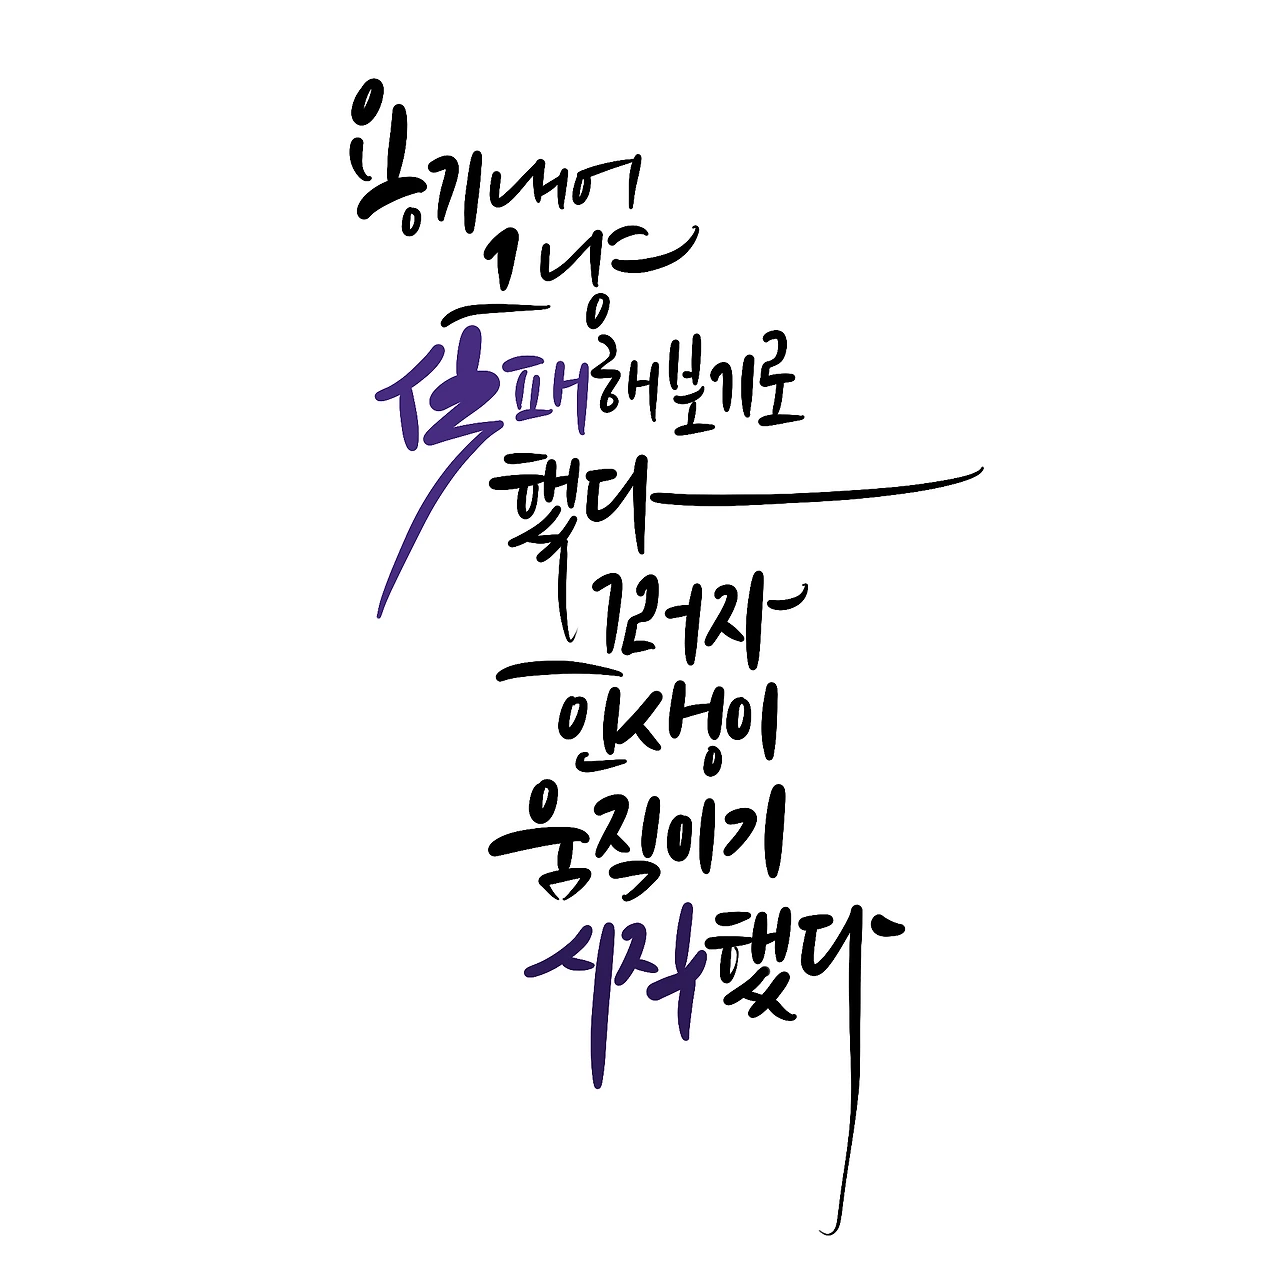 용기내어
그냥
실패해보기로
했다
그러자
인생이
움직이기
시작했다